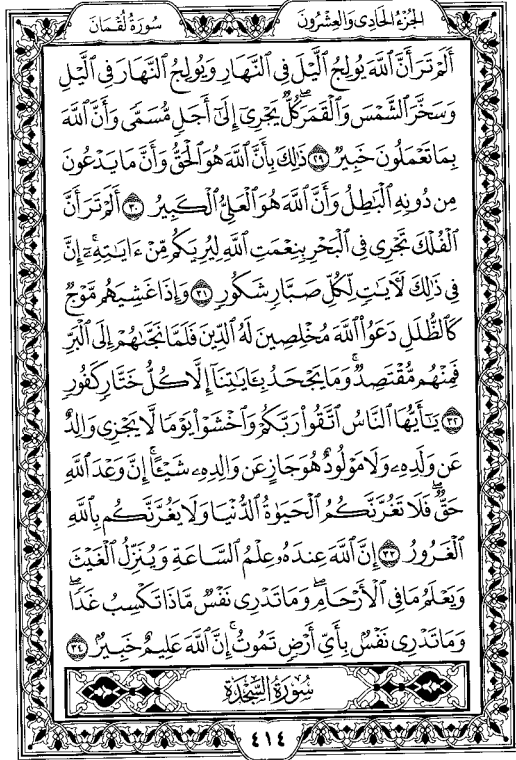 سُورَةُ لُقْمَانَ الجُزْءُ الحَادِي وَالعِشْرُونَ
أَلَمْ تَرَ أَنَّ ٱللَّهَ يُولِجُ ٱلَّيْلَ فِي ٱلنَّهَارِ وَيُولِجُ ٱلنَّهَارَ فِي ٱلَّيْلِ
وَسَخَّرَ ٱلشَّمْسَ وَٱلْقَمَرَۖ كُلٌّ يَجْرِيٓ إِلَىٰٓ أَجَلٍ مُّسَمًّى وَأَنَّ ٱللَّهَ
بِمَا تَعْمَلُونَ خَبِيرٌ ٢٩ ذَٰلِكَ بِأَنَّ ٱللَّهَ هُوَ ٱلْحَقُّ وَأَنَّ مَا يَدْعُونَ
مِن دُونِهِ ٱلْبَٰطِلُ وَأَنَّ ٱللَّهَ هُوَ ٱلْعَلِيُّ ٱلْكَبِيرُ ٣٠ أَلَمْ تَرَ أَنَّ
ٱلْفُلْكَ تَجْرِي فِي ٱلْبَحْرِ بِنِعْمَتِ ٱللَّهِ لِيُرِيَكُم مِّنْ ءَايَٰتِهِۦٓۚ إِنَّ
فِي ذَٰلِكَ لَأٓيَٰتٍ لِّكُلِّ صَبَّارٍ شَكُورٍ ٣١ وَإِذَا غَشِيَهُم مَّوْجٌ
كَٱلظُّلَلِ دَعَوُاْ ٱللَّهَ مُخْلِصِينَ لَهُ ٱلدِّينَ فَلَمَّا نَجَّىٰهُمْ إِلَى ٱلْبَرِّ
فَمِنْهُم مُّقْتَصِدٌۚ وَمَا يَجْحَدُ بِـَٔايَٰتِنَآ إِلَّا كُلُّ خَتَّارٍ كَفُورٍ
٣٢ يَٰٓأَيُّهَا ٱلنَّاسُ ٱتَّقُواْ رَبَّكُمْ وَٱخْشَوْاْ يَوْمًا لَّا يَجْزِي وَالِدٌ
عَن وَلَدِهِۦ وَلَا مَوْلُودٌ هُوَ جَازٍ عَن وَالِدِهِۦ شَيْـًٔاۚ إِنَّ وَعْدَ ٱللَّهِ
حَقٌّۖ فَلَا تَغُرَّنَّكُمُ ٱلْحَيَوٰةُ ٱلدُّنْيَا وَلَا يَغُرَّنَّكُم بِٱللَّهِ
ٱلْغَرُورُ ٣٣ إِنَّ ٱللَّهَ عِندَهُۥ عِلْمُ ٱلسَّاعَةِ وَيُنَزِّلُ ٱلْغَيْثَ
وَيَعْلَمُ مَا فِي ٱلْأَرْحَامِۖ وَمَا تَدْرِي نَفْسٌ مَّاذَا تَكْسِبُ غَدًاۖ
وَمَا تَدْرِي نَفْسٌۢ بِأَيِّ أَرْضٍ تَمُوتُۚ إِنَّ ٱللَّهَ عَلِيمٌ خَبِيرٌۢ ٣٤
سُورَةُ السَّجْدَةِ
٤١٤